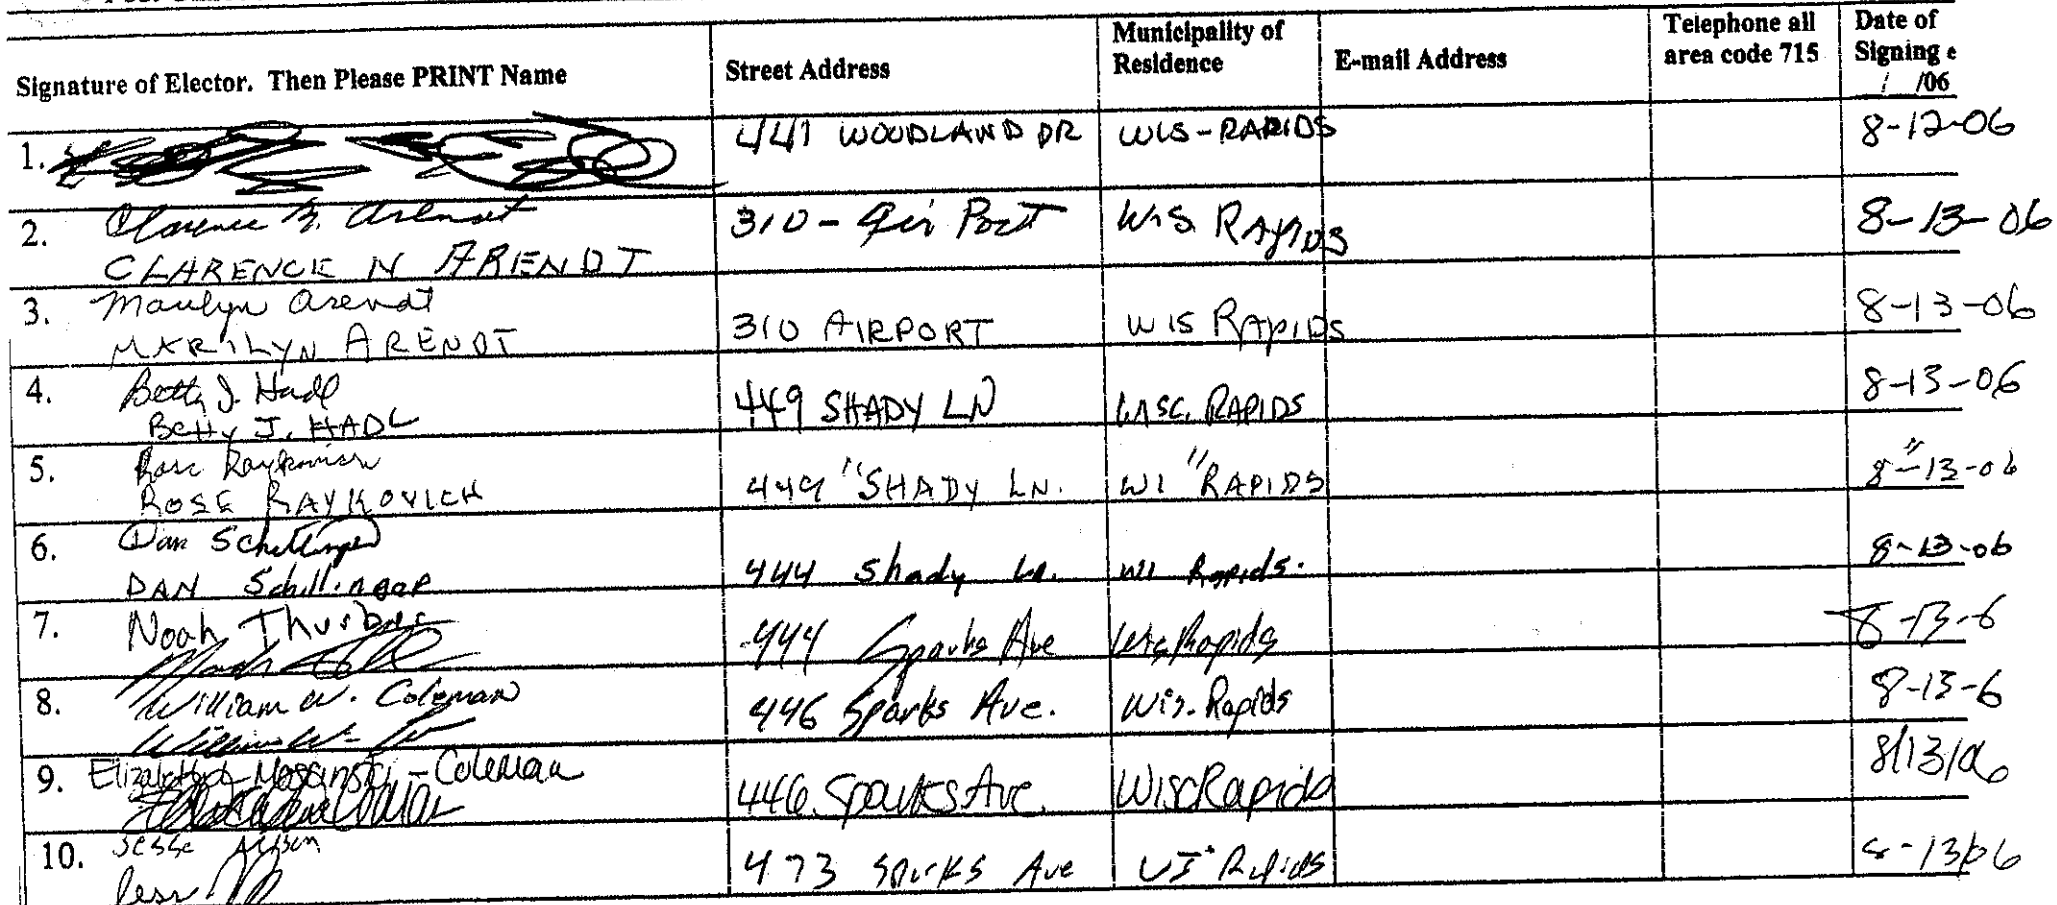 Signature of Elector. Then Please PRINT Name Street Address Municipality of Residence E-mail Address Telephone all area code 715 Date of Signing e / /06
1. 441 WOODLAND DR WIS-RAPIDS 8-12-06
2. Clarence N. Arendt 310 - Air Port Wis. RAPIDS 8-13-06
CLARENCE N ARENDT
3. Marilyn Arendt 310 AIRPORT WIS RAPIDS 8-13-06
MARILYN ARENDT
4. Betty J. Hadl 449 SHADY LN WISC. RAPIDS 8-13-06
Betty J. HADL
5. Rose Raykovich 449 "SHADY LN. WI "RAPIDS 8-13-06
ROSE RAYKOVICH
6. Dan Schillinger 444 Shady Ln. WI Rapids. 8-13-06
DAN Schillinger
7. Noah 444 Sparks Ave Wis Rapids 8-13-6
8. William W. Coleman 446 Sparks Ave. Wis. Rapids 8-13-6
William W.
9. Elizabeth -Coleman 446 Sparks Ave. Wisc Rapids 8/13/06
10. Jesse 473 Sparks Ave WI Rapids 8-13/06